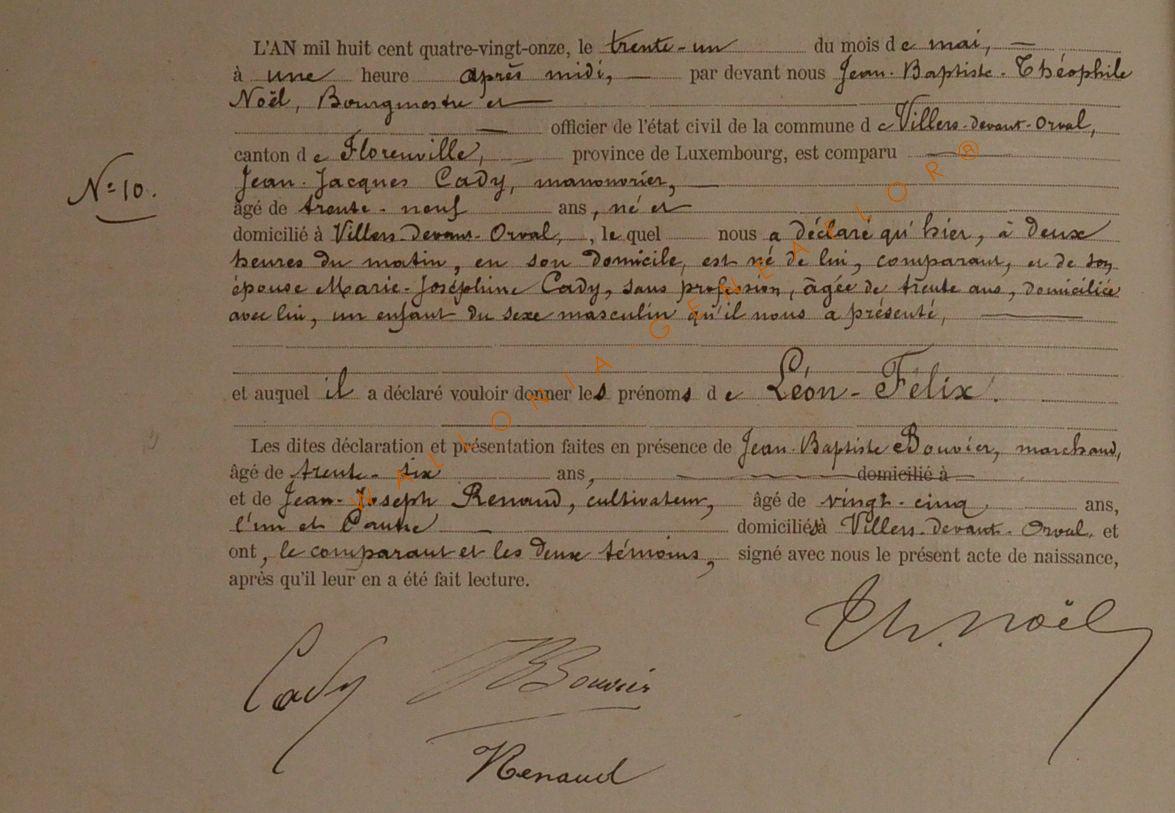 L'AN mil huit cent quatre-vingt-onze, le trente-un du mois de mai,
à une heure après midi, par devant nous Jean-Baptiste-Théophile
Noël, Bourgmestre et
officier de l'état civil de la commune de Villers-devant-Orval,
canton de Florenville, province de Luxembourg, est comparu
N° 10.
Jean-Jacques Cady, manouvrier,
âgé de trente-neuf ans, né et
domicilié à Villers-devant-Orval, , le quel nous a déclaré qu'hier, à deux
heures du matin, en son domicile, est né de lui, comparant, et de son
épouse Marie-Joséphine Cady, sans profession, âgée de trente ans, domiciliée
avec lui, un enfant du sexe masculin qu'il nous a présenté,
et auquel il a déclaré vouloir donner les prénoms de Léon-Félix.
Les dites déclaration et présentation faites en présence de Jean-Baptiste Bouvier, marchand,
âgé de trente-six ans, domicilié à
et de Jean-Joseph Renaud, cultivateur, âgé de vingt-cinq ans,
l'un et l'autre domiciliés à Villers-devant-Orval, et
ont, le comparant et les deux témoins, signé avec nous le présent acte de naissance,
après qu'il leur en a été fait lecture.
Th. Noël
Cady JBBouvier
Renaud
WALLONIA GENEALOR®